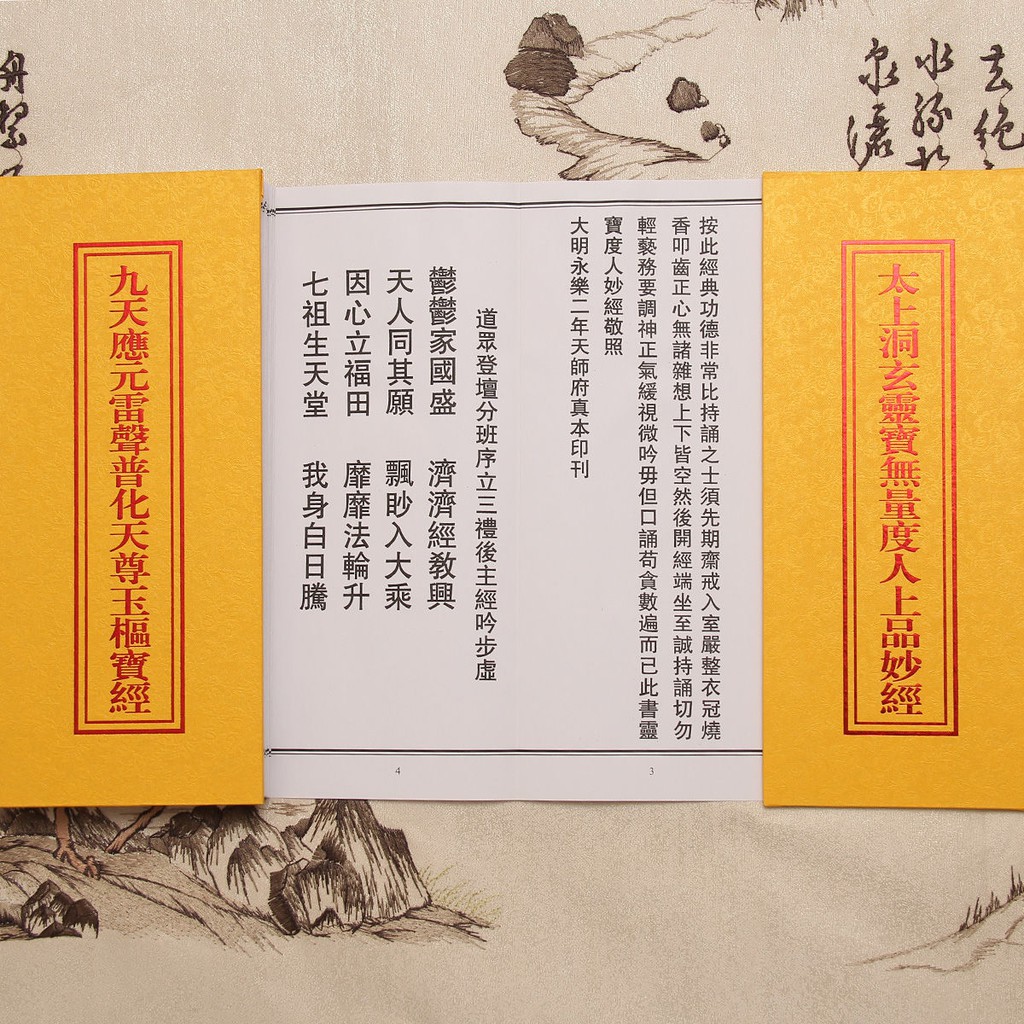 太上洞玄靈寶無量度人上品妙經
按此經典功德非常比持誦之士須先期齋戒入室嚴整衣冠燒
香叩齒正心無諸雜想上下皆空然後開經端坐至誠持誦切勿
輕褻務要調神正氣緩視微吟毋但口誦苟貪數遍而已此書靈
寶度人妙經敬照
大明永樂二年天師府真本印刊
3
道眾登壇分班序立三禮後主經吟步虛
鬱鬱家國盛 濟濟經教興
天人同其願 飄眇入大乘
因心立福田 靡靡法輪升
七祖生天堂 我身白日騰
4
九天應元雷聲普化天尊玉樞寶經
去絶
水
泉
舟